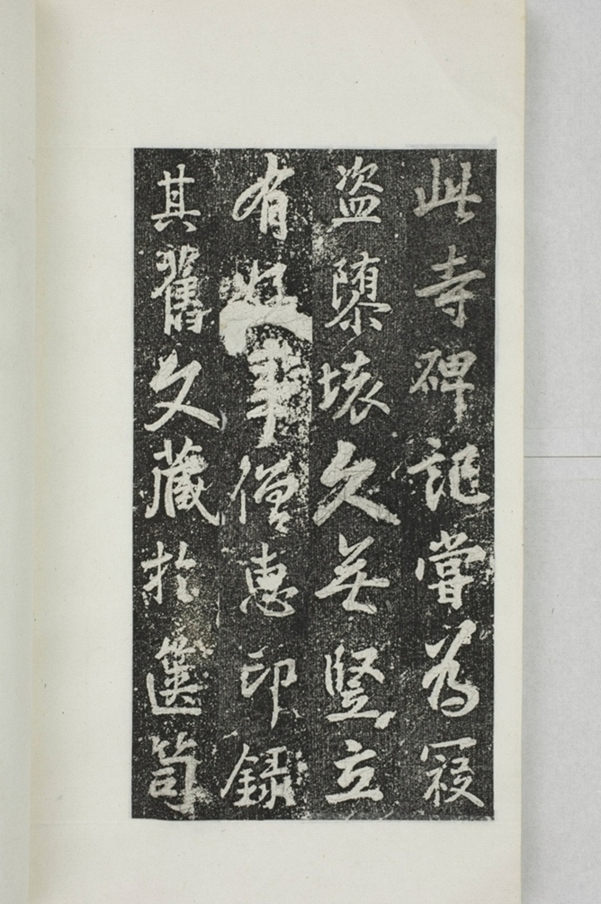 此寺碑記嘗為寇
盜隳壞久無豎立
有好事僧惠印錄
其舊文藏於篋笥